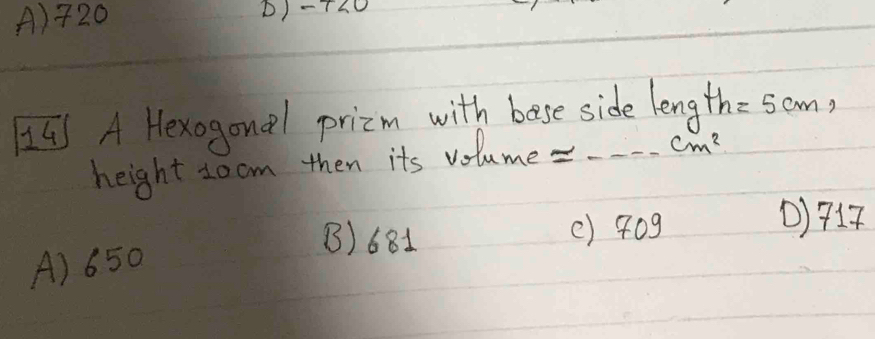 A) 720 D) -720
14 A Hexogonal prizm with base side length = 5 cm,
height 10cm then its volume = ---- cm²
A) 650 B) 681 C) 709 D) 717